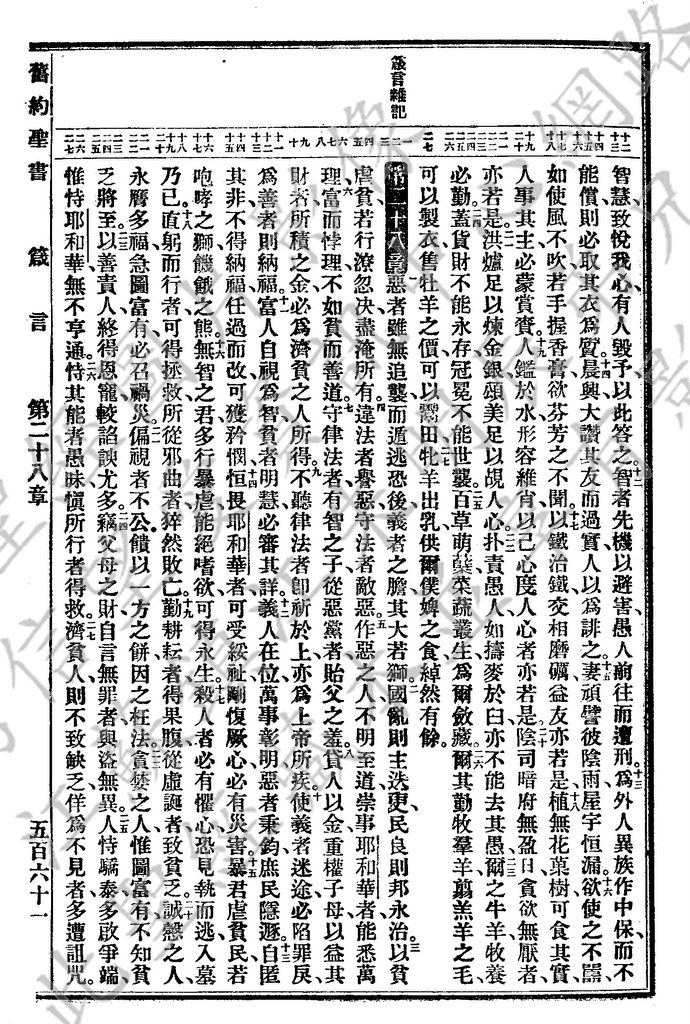 舊約聖書　箴言　第二十八章　五百六十一
箴言雜記
智慧致悅我心有人毀予以此答之智者先機以避害愚人前往而遭刑爲外人異族作中保而不
能償則必取其衣爲質晨興大讚其友而過實人以爲誹之妻頑譬彼陰雨屋宇恒漏欲使之不嚚
如使風不吹若手握香膏欲芬芳之不聞以鐵治鐵交相磨礪益友亦若是植無花菓樹可食其實
人事其主必蒙賞賚人鑑於水形容維肖以己心度人心者亦若是陰司暗府無盈日食欲無厭者
亦若是洪爐足以煉金銀頌美足以覘人心扑責愚人如擣麥於臼亦不能去其愚爾之牛羊牧養
必勤蓋貨財不能永存冠冕不能世襲百草萌蘗菜蔬叢生爲爾斂藏爾其勤牧羣羊翦羔羊之毛
可以製衣售牡羊之價可以鬻田牝羊出乳供爾僕婢之食綽然有餘
第二十八章惡者雖無追襲而遁逃恐後義者之膽其大若獅國亂則主迭更民良則邦永治以貧
虐貧若行潦忽決盡淹所有違法者譽惡守法者敵惡作惡之人不明至道崇事耶和華者能悉萬
理富而悖理不如貧而善道守律法者有智之子從惡黨者貽父之羞貸人以金重權子母以益其
財者所積之金必爲濟貧之人所得不聽律法者卽祈於上亦爲上帝所疾使義者迷途必陷罪戾
爲善者則納福富人自視爲智貧者明慧必審其詳義人在位萬事彰明惡者秉鈞庶民隱遯自匿
其非不得納福任過而改可獲矜憫恒畏耶和華者可受綏祉剛愎厥心必有災害暴君虐貧民若
咆哮之獅饑餓之熊無智之君多行暴虐能絕嗜欲可得永生殺人者必有懼心恐見執而逃入墓
乃已直躬而行者可得拯救所從邪曲者猝然敗亡勤耕耘者得果腹從虛誕者致貧乏誠慤之人
永膺多福急圖富有必召禍災偏視者不公饋以一方之餅因之枉法貪婪之人惟圖富有不知貧
乏將至以善責人終得恩寵較諂諛尤多竊父母之財自言無罪者與盜無異人恃驕泰多啟爭端
惟恃耶和華無不亨通恃其能者愚昧愼所行者得救濟貧人則不致缺乏佯爲不見者多遭詛咒